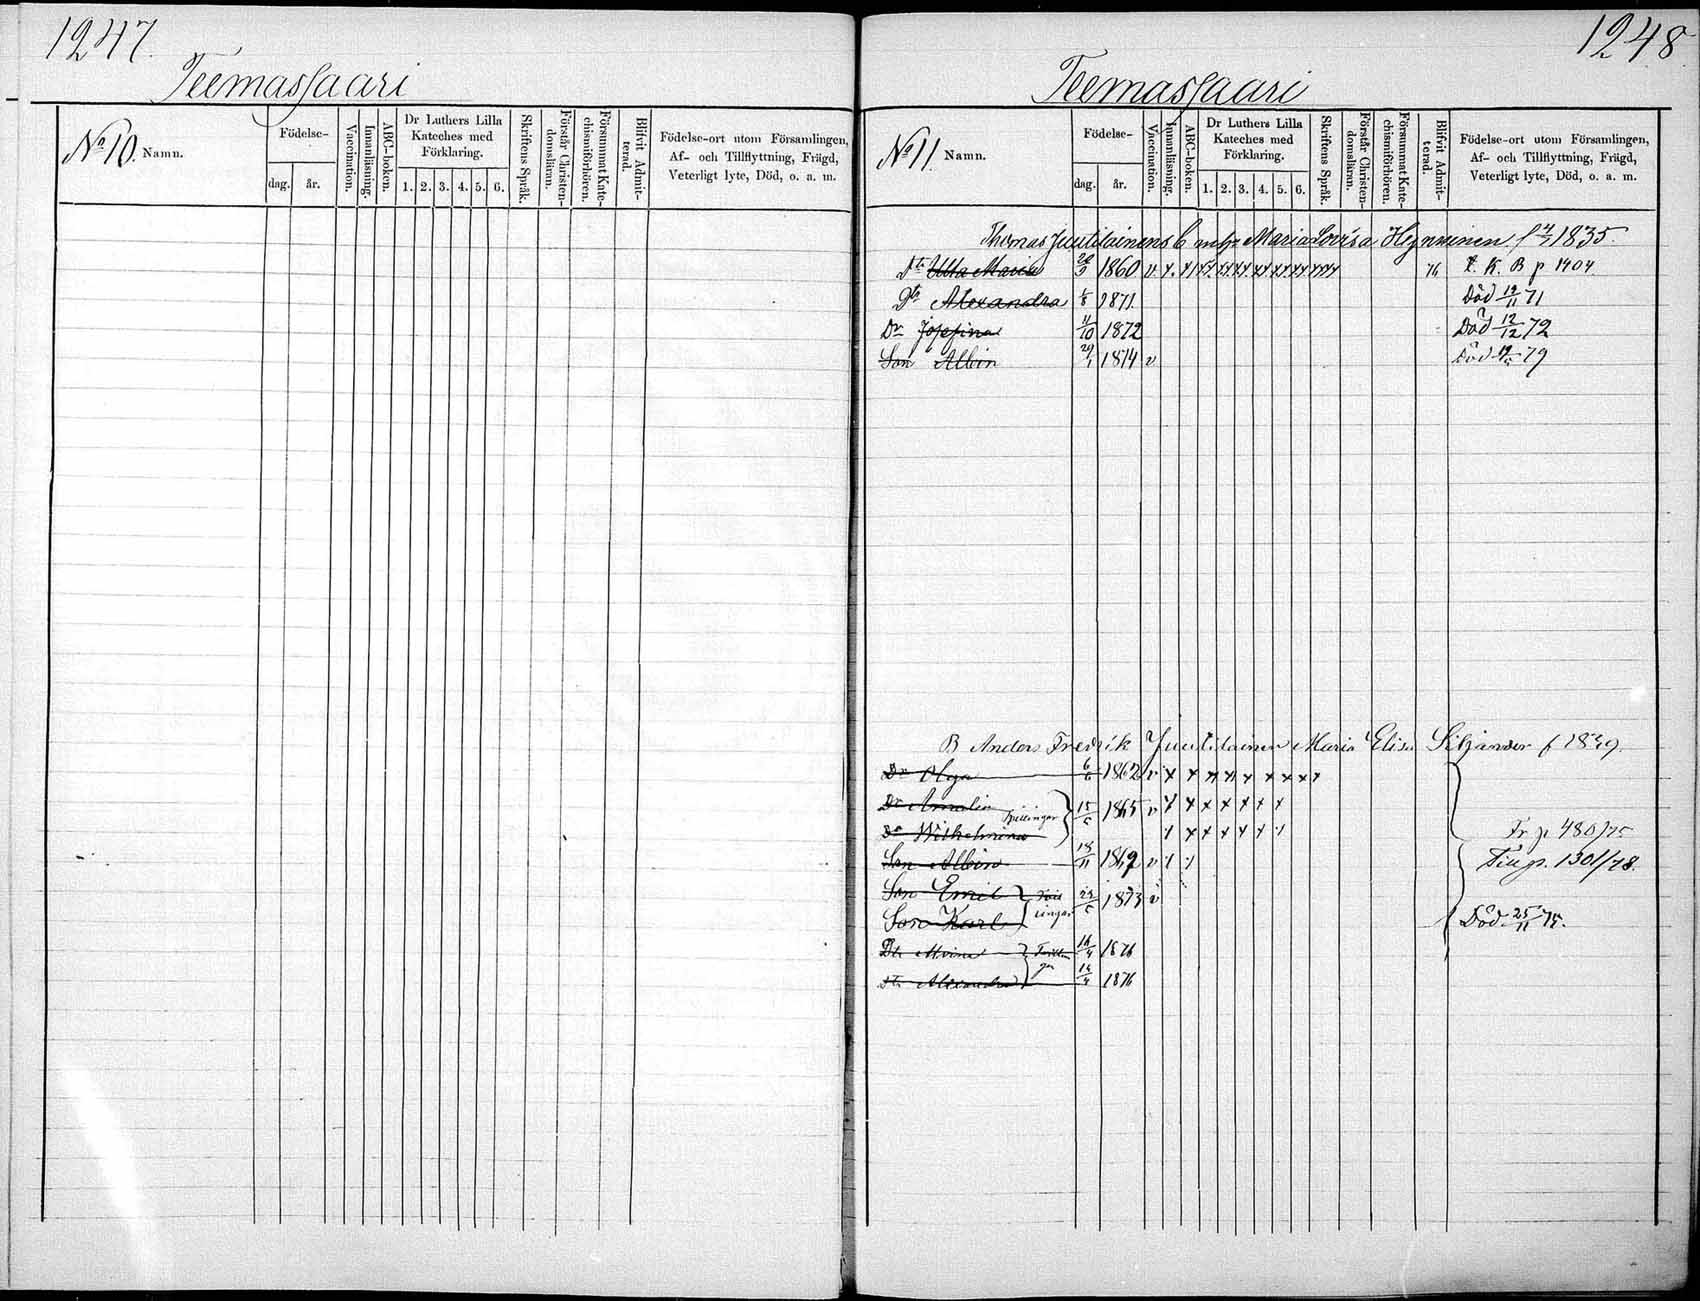 1247.
Teemassaari
No 10. Namn.
Födelse-
dag. år.
Vaccination.
Innanläsning.
ABC-boken.
Dr Luthers Lilla
Kateches med
Förklaring.
1. 2. 3. 4. 5. 6.
Skriftens Språk.
Förstår Christen-
domsläran.
Försummat Kate-
chismiförhören.
Blifvit Admit-
terad.
Födelse-ort utom Församlingen,
Af- och Tillflyttning, Frägd,
Veterligt lyte, Död, o. a. m.
1248
Teemassaari
No 11. Namn.
Födelse-
dag. år.
Vaccination.
Innanläsning.
ABC-boken.
Dr Luthers Lilla
Kateches med
Förklaring.
1. 2. 3. 4. 5. 6.
Skriftens Språk.
Förstår Christen-
domsläran.
Försummat Kate-
chismiförhören.
Blifvit Admit-
terad.
Födelse-ort utom Församlingen,
Af- och Tillflyttning, Frägd,
Veterligt lyte, Död, o. a. m.
Thomas Juutilainens Maria Lovisa 1835.
Dtr Ulla Maria 1860 v x x x x x x x x x 76 B p 1404
Dtr Alexandra 1/8 1871 Död 19/11 71
Dr Josefina 11/10 1872 Död 12/12 72
Son Albin 29/1 1874 v Död 79
B Anders Fredrik Juutilainen Maria Elisa Siljander f 1839
Dr Olga 6/6 1862 v x x x x x x x x
Dr Amalia 15/5 1865 v x x x x x x x
Dr Wilhelmina x x x x x x Fr p 480/75
Son Albin 18/11 1869 v x x p. 1301/78.
Son Emil 22/5 1873 v
Son Karl Död 25/11 75.
Dtr 14/4 1876
Dtr Alexandra 14/4 1876